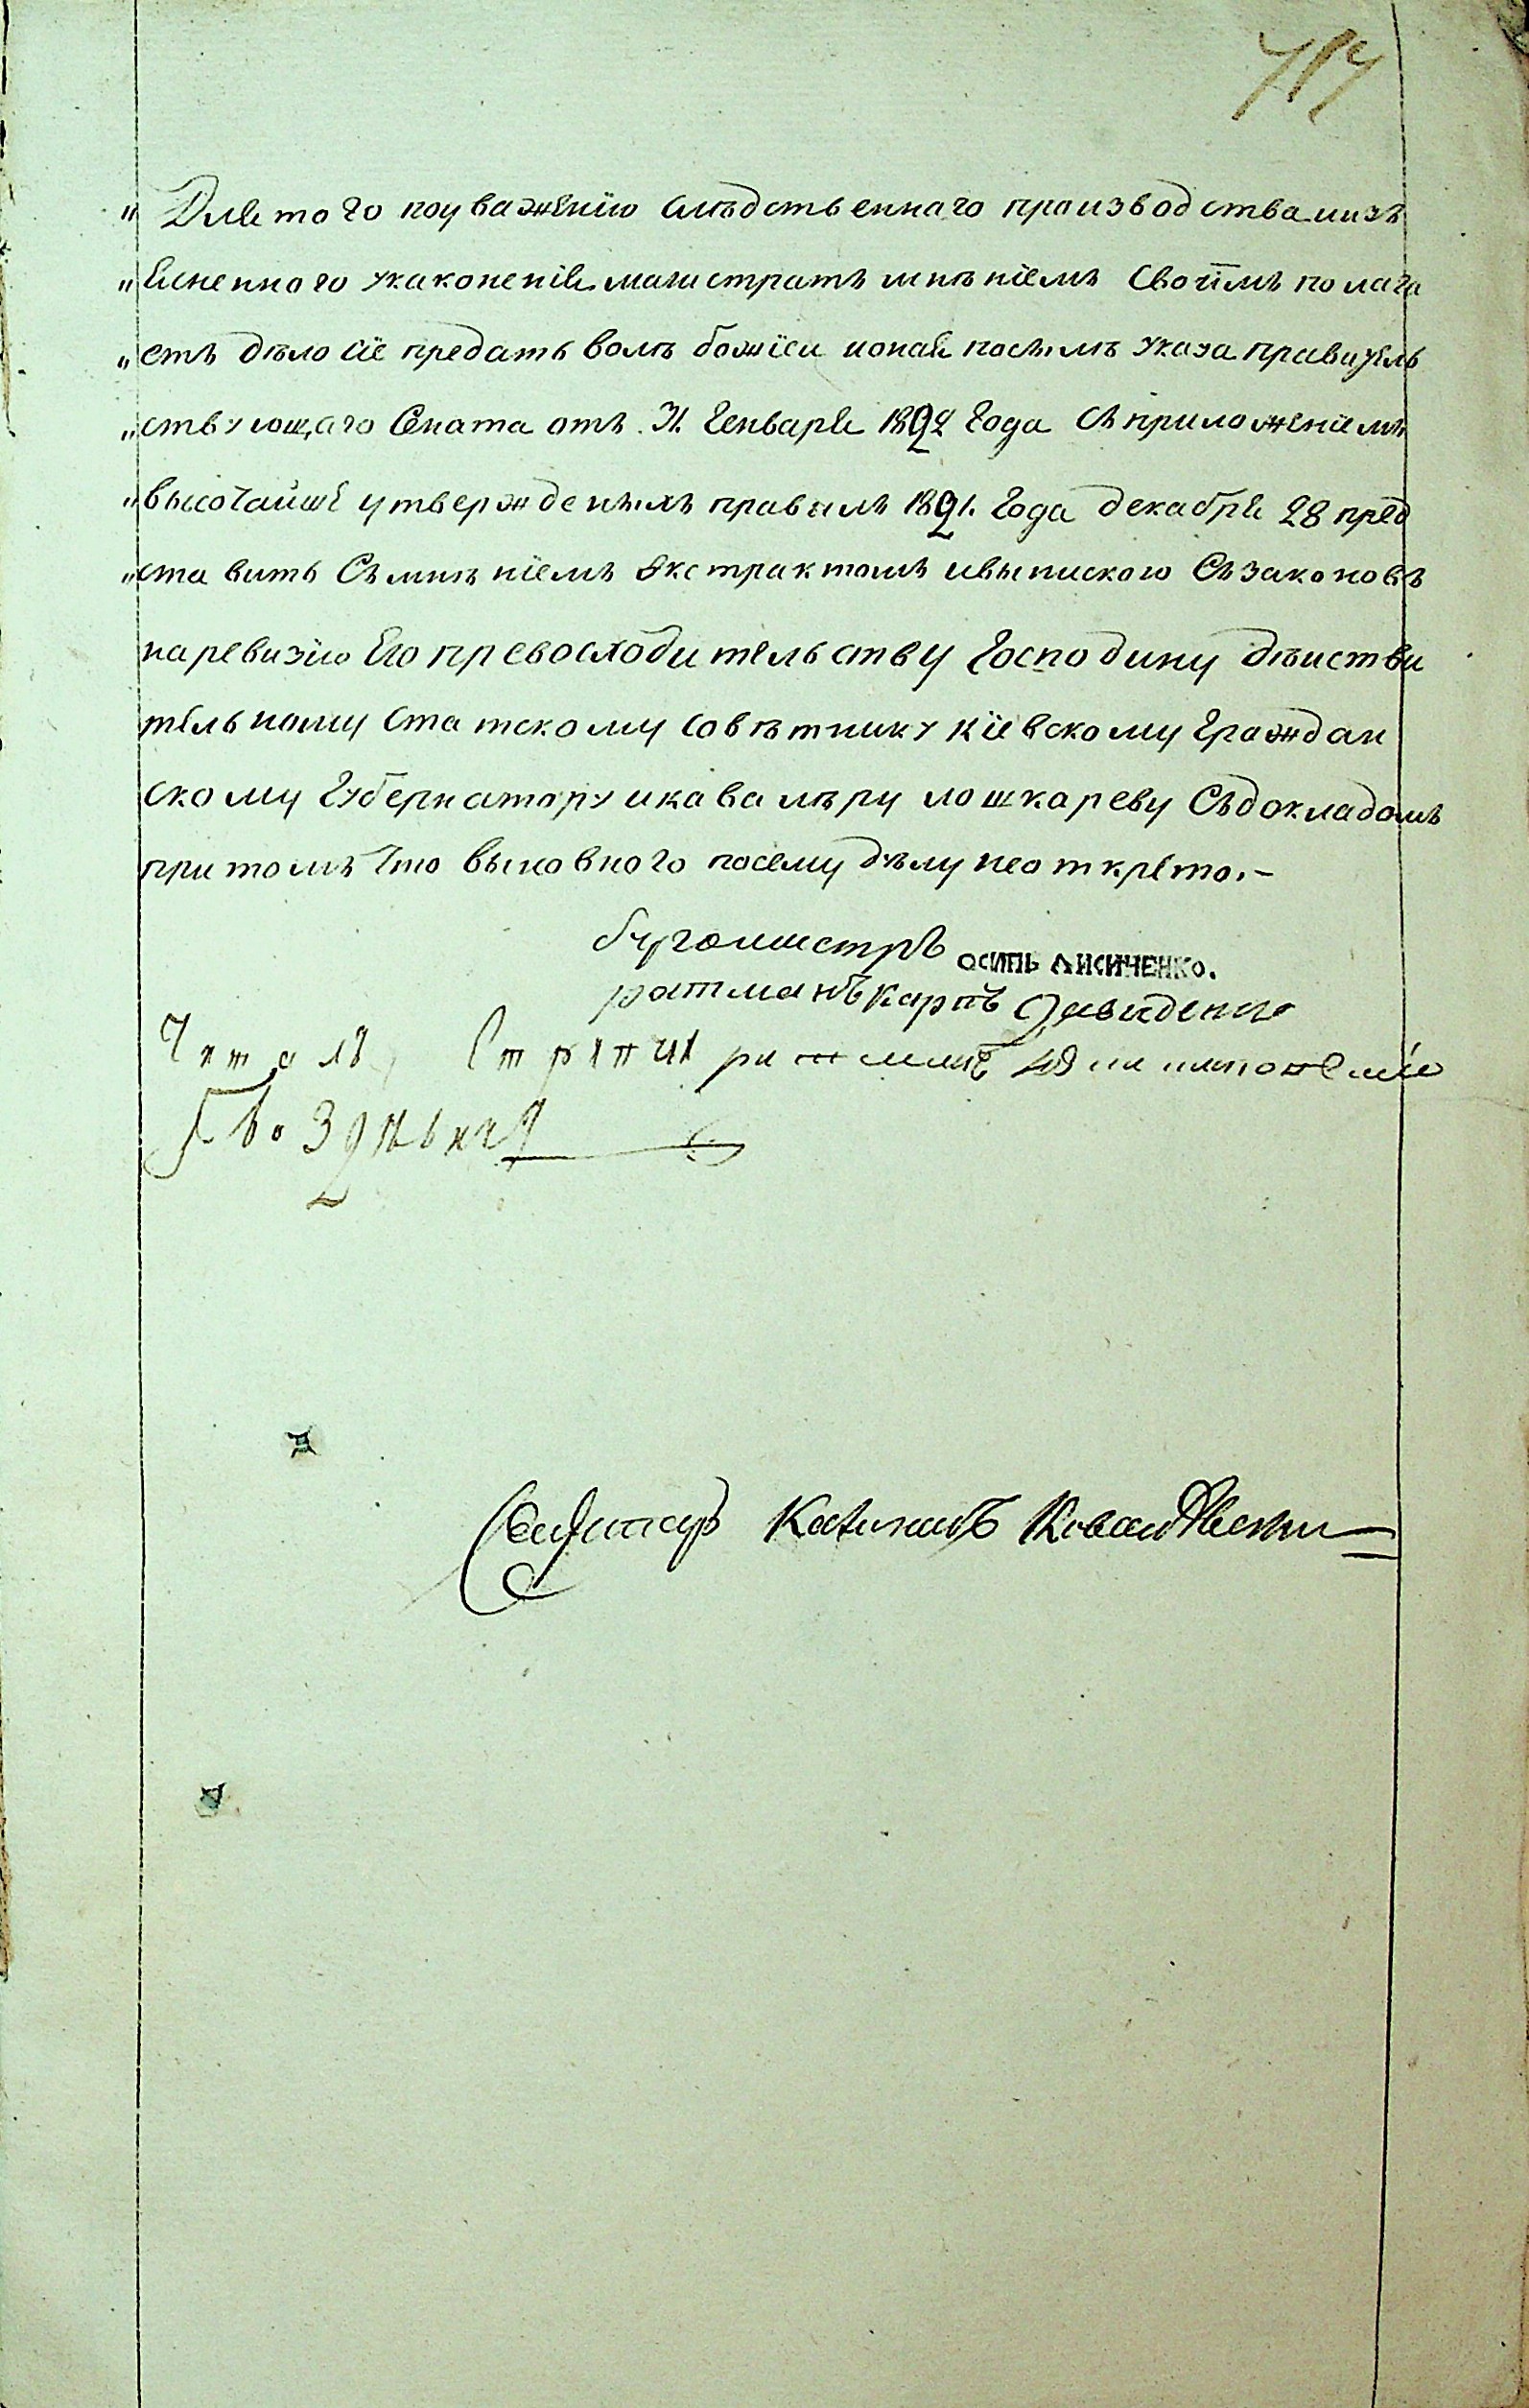 „ Для того поуважению следственнаго производства иизъ
„ ясненного узаконения магистратъ мнѣниемъ своiимъ полага
„ етъ дѣло сiе предать волѣ божiеи ионая посылѣ указа правитель
„ ствующаго Сената отъ 31. Генваря 1822 Года Съприложениемъ
„ высочайше утвержденыхъ правилъ 1821. Года декабря 28 пред
„ ставить Съмнѣнiемъ экстрактомъ ивыпискою Сзаконовъ
наревизiю Его превосходительству Господину дѣистви
тельному Статскому совѣтнику кiевскому Граждан
скому Губернатору икавалѣру лошкареву Съдокладомъ
притомъ что выновного посему дѣлу неоткрыто.-
бургомистръ ОСИПЬ ЛИСИЧЕНКО.
ратманъ карпъ Давиденко
Читалъ Стряпчи
Гвоздѣвичъ
Секретарь